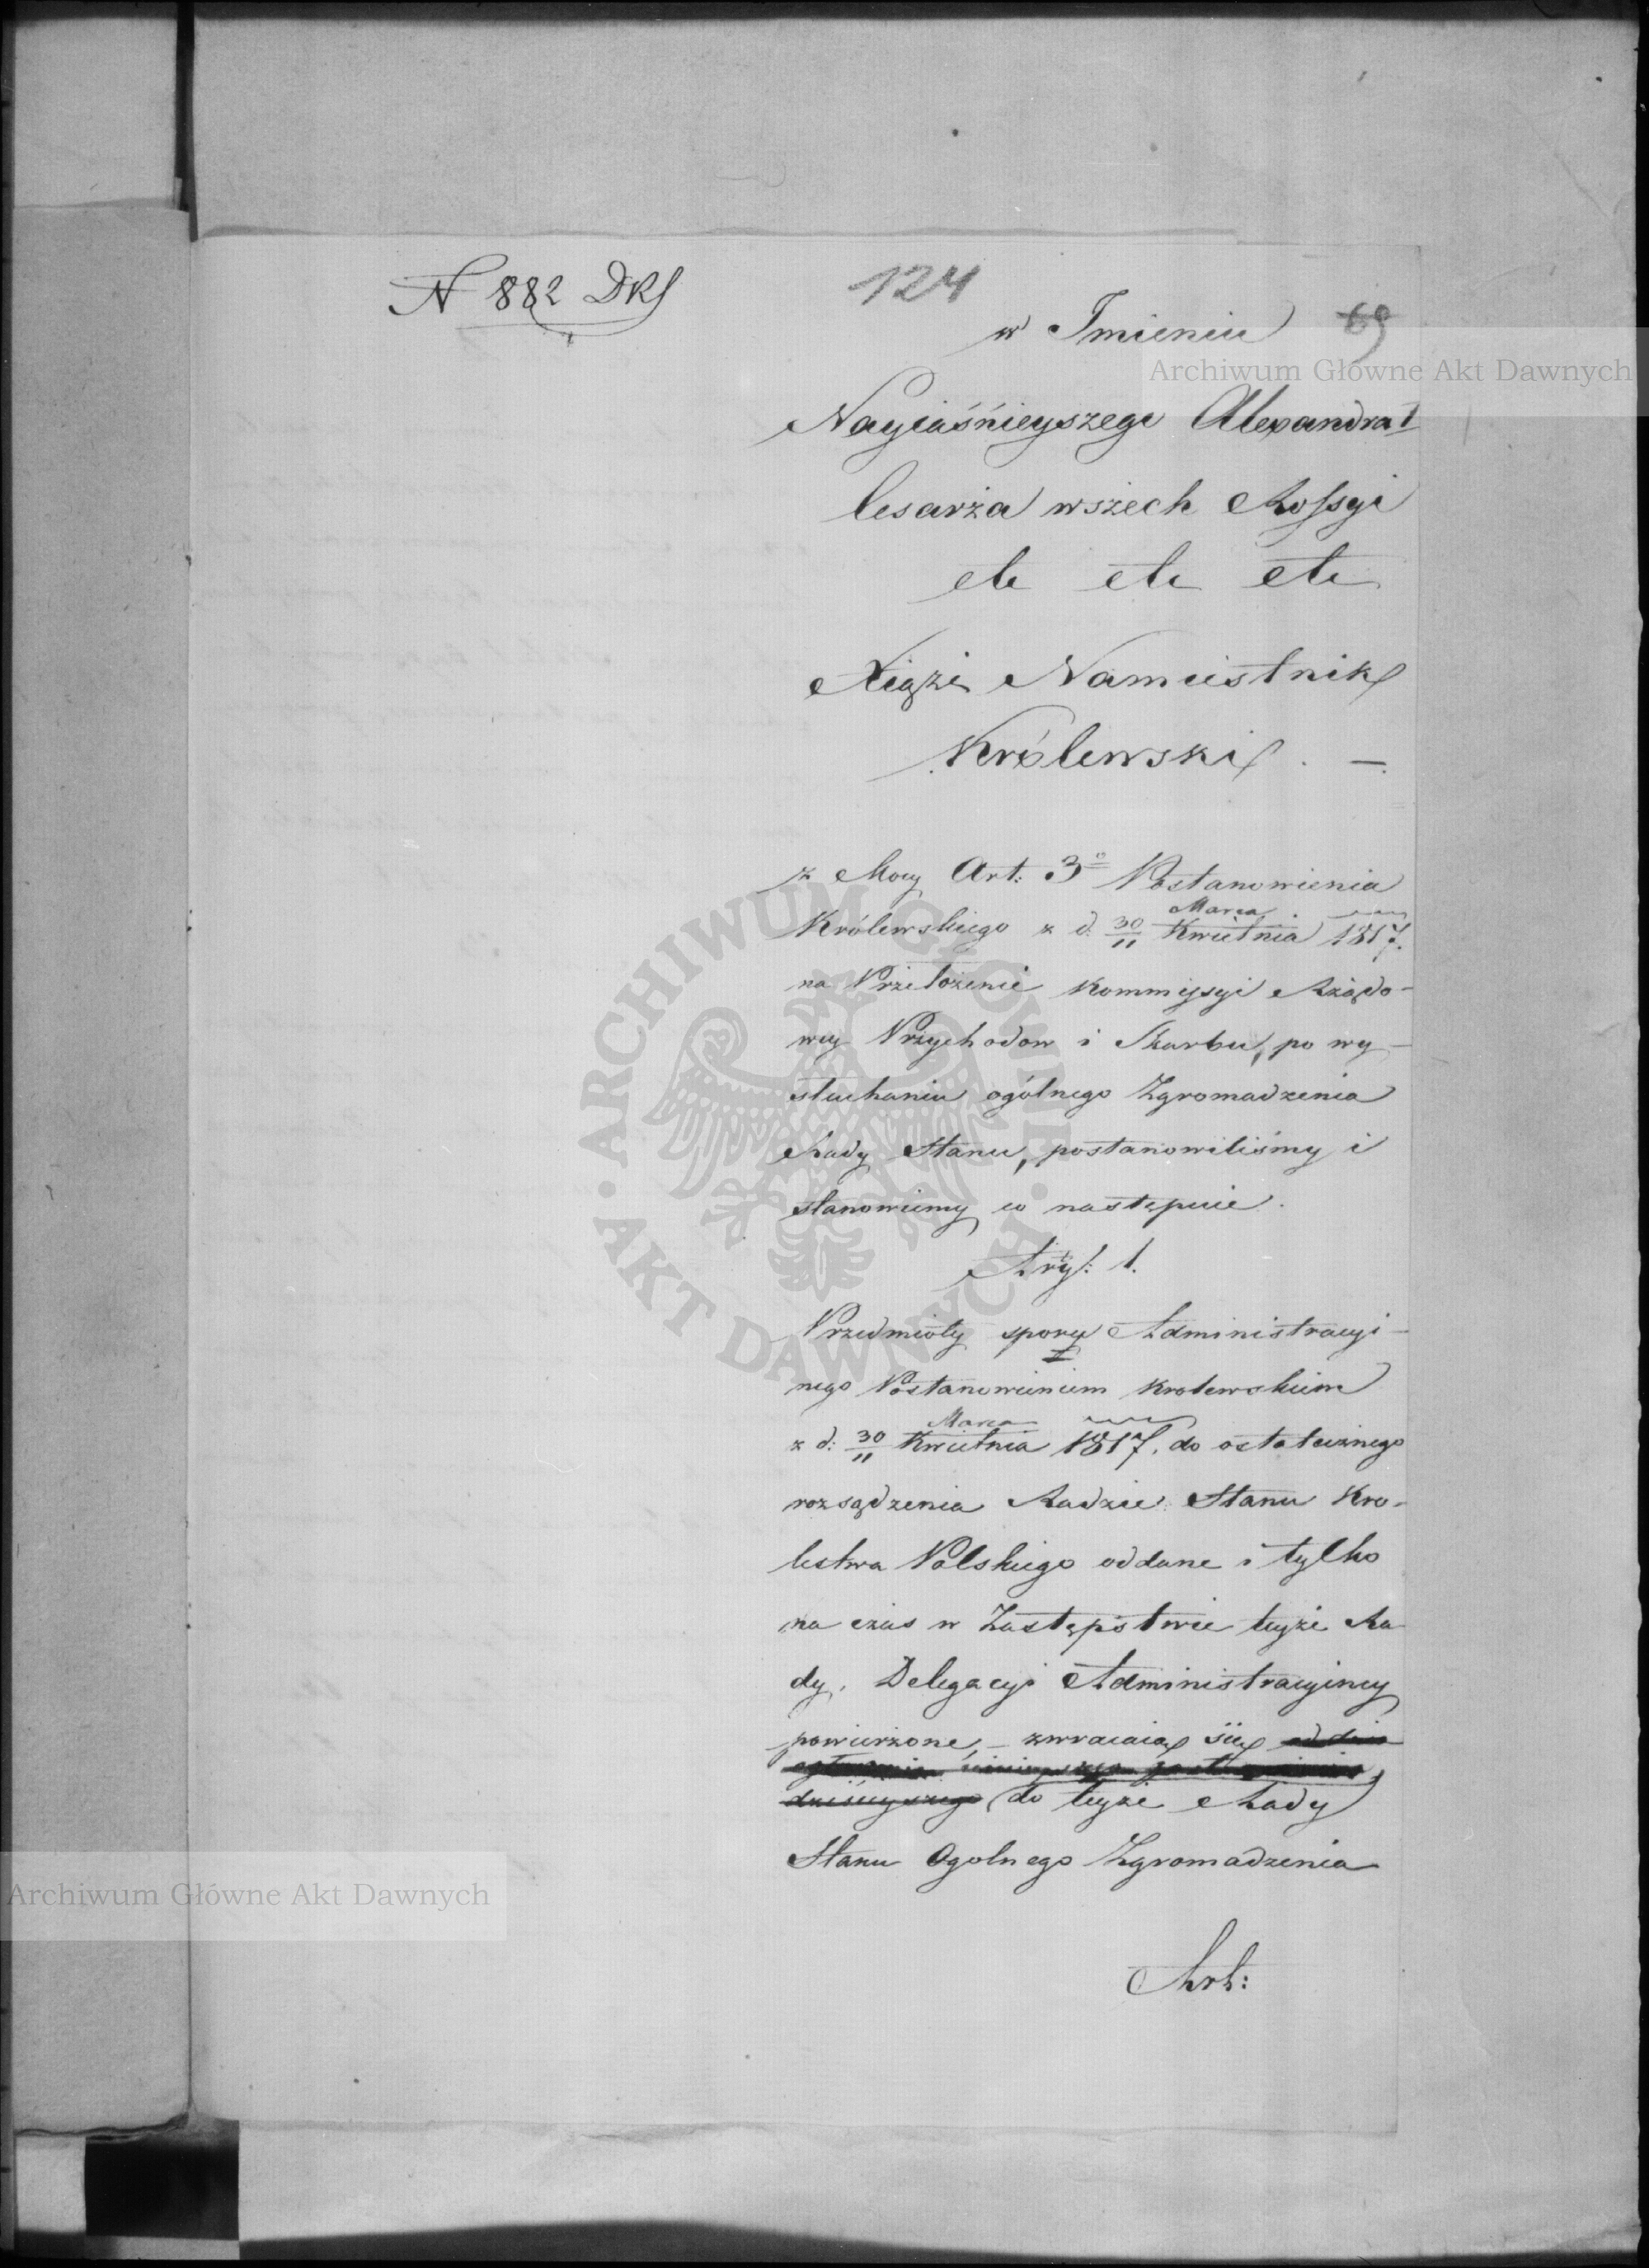 N 882 DRS
124
w Imieniu 69
Nayiaśnieyszego Alexandra I
Cesarza wszech Rossyi
etc etc etc
Xiąże Namiestnik
Królewski. —
z Mocy Art: 3º Postanowienia
Królewskiego z d. 30/11 Marca/Kwietnia 1817.
na Przełożenie Kommissyi Rządo-
wey Przychodow i Skarbu, po wy-
słuchaniu ogólnego Zgromadzenia
Rady Stanu, postanowiliśmy i
stanowiemy co następuie.
Artył: 1.
Przedmioty sporu Administracyi-
nego Postanowieniem Krolewskiem
z d: 30/11 Marca/Kwietnia 1817. do ostatecznego
rozsądzenia Radzie Stanu Kro-
lestwa Polskiego oddane i tylko
na czas w Zastępstwie teyże Ra
dy, Delegacyi Administracyiney
powierzone, – zwracaią się od dnia
ogłoszenia ninieyszego postanowienia
dzisieyszego do teyże Rady
Stanu Ogolnego Zgromadzenia
Art:
Archiwum Główne Akt Dawnych
Archiwum Główne Akt Dawnych
· ARCHIWUM GŁÓWNE · AKT DAWNYCH